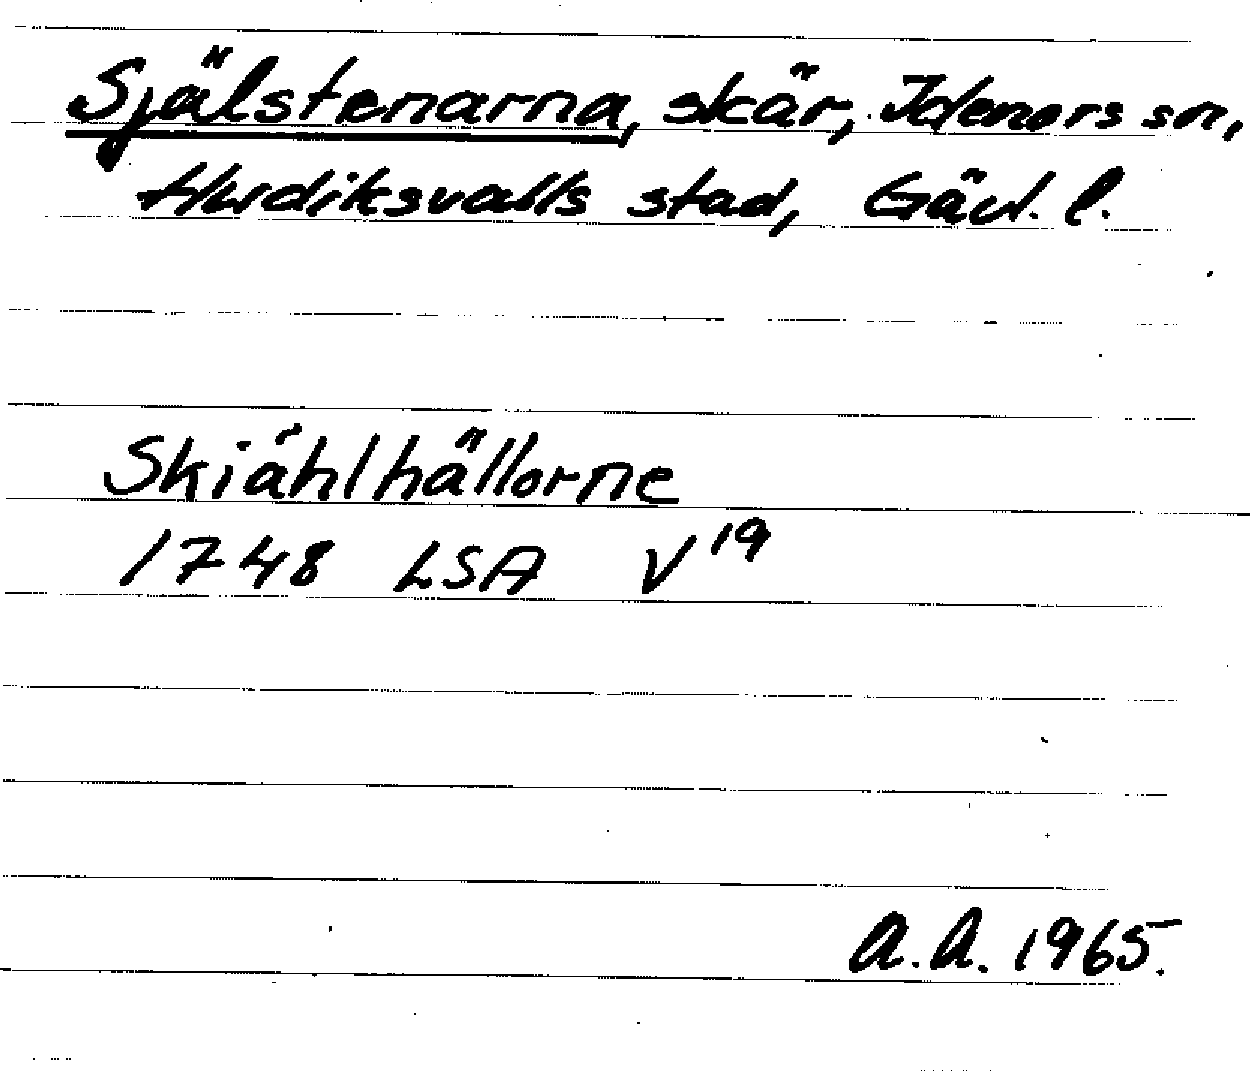 Själstenarna, skär, Idenors sn,
Hudiksvalls stad, Gävl. l.
Skiählhällorne
1748 LSA V¹⁹
A.A. 1965.